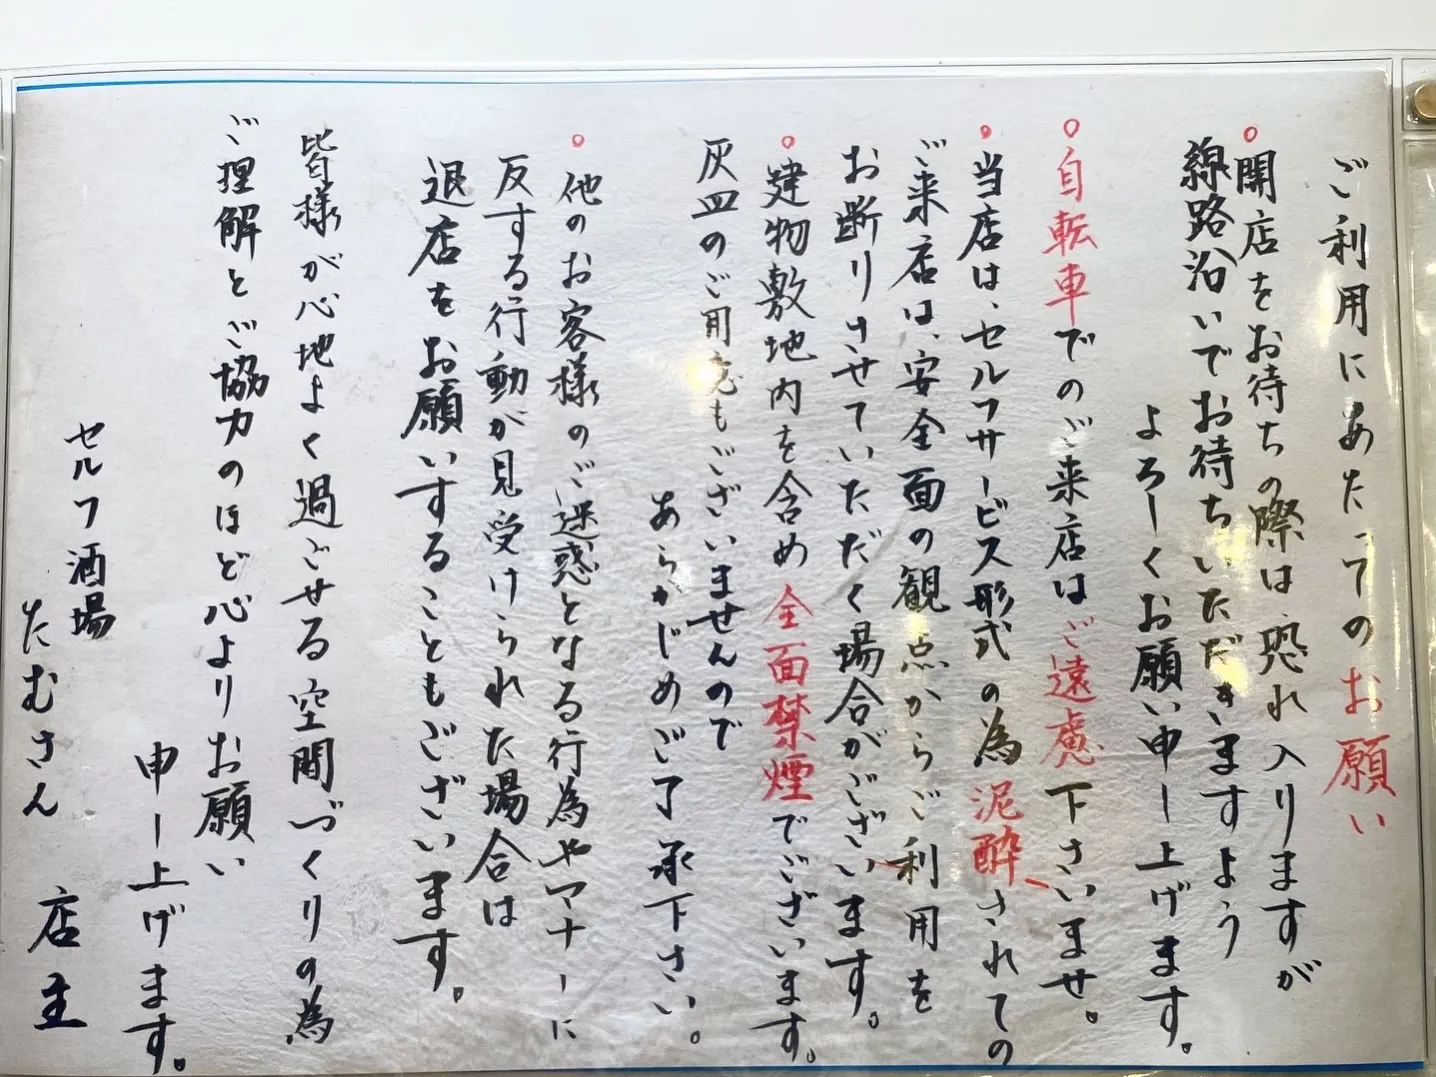 ご利用にあたってのお願い
○開店をお待ちの際は、恐れ入りますが
線路沿いでお待ちいただきますよう
よろしくお願い申し上げます。
○自転車でのご来店はご遠慮下さいませ。
○当店は、セルフサービス形式の為泥酔されての
ご来店は、安全面の観点からご利用を
お断りさせていただく場合がございます。
○建物敷地内を含め全面禁煙でございます。
灰皿のご用意もございませんので
あらかじめご了承下さい。
○他のお客様のご迷惑となる行為やマナーに
反する行動が見受けられた場合は
退店をお願いすることもございます。
皆様が心地よく過ごせる空間づくりの為
ご理解とご協力のほど心よりお願い
申し上げます。
セルフ酒場
たむさん 店主